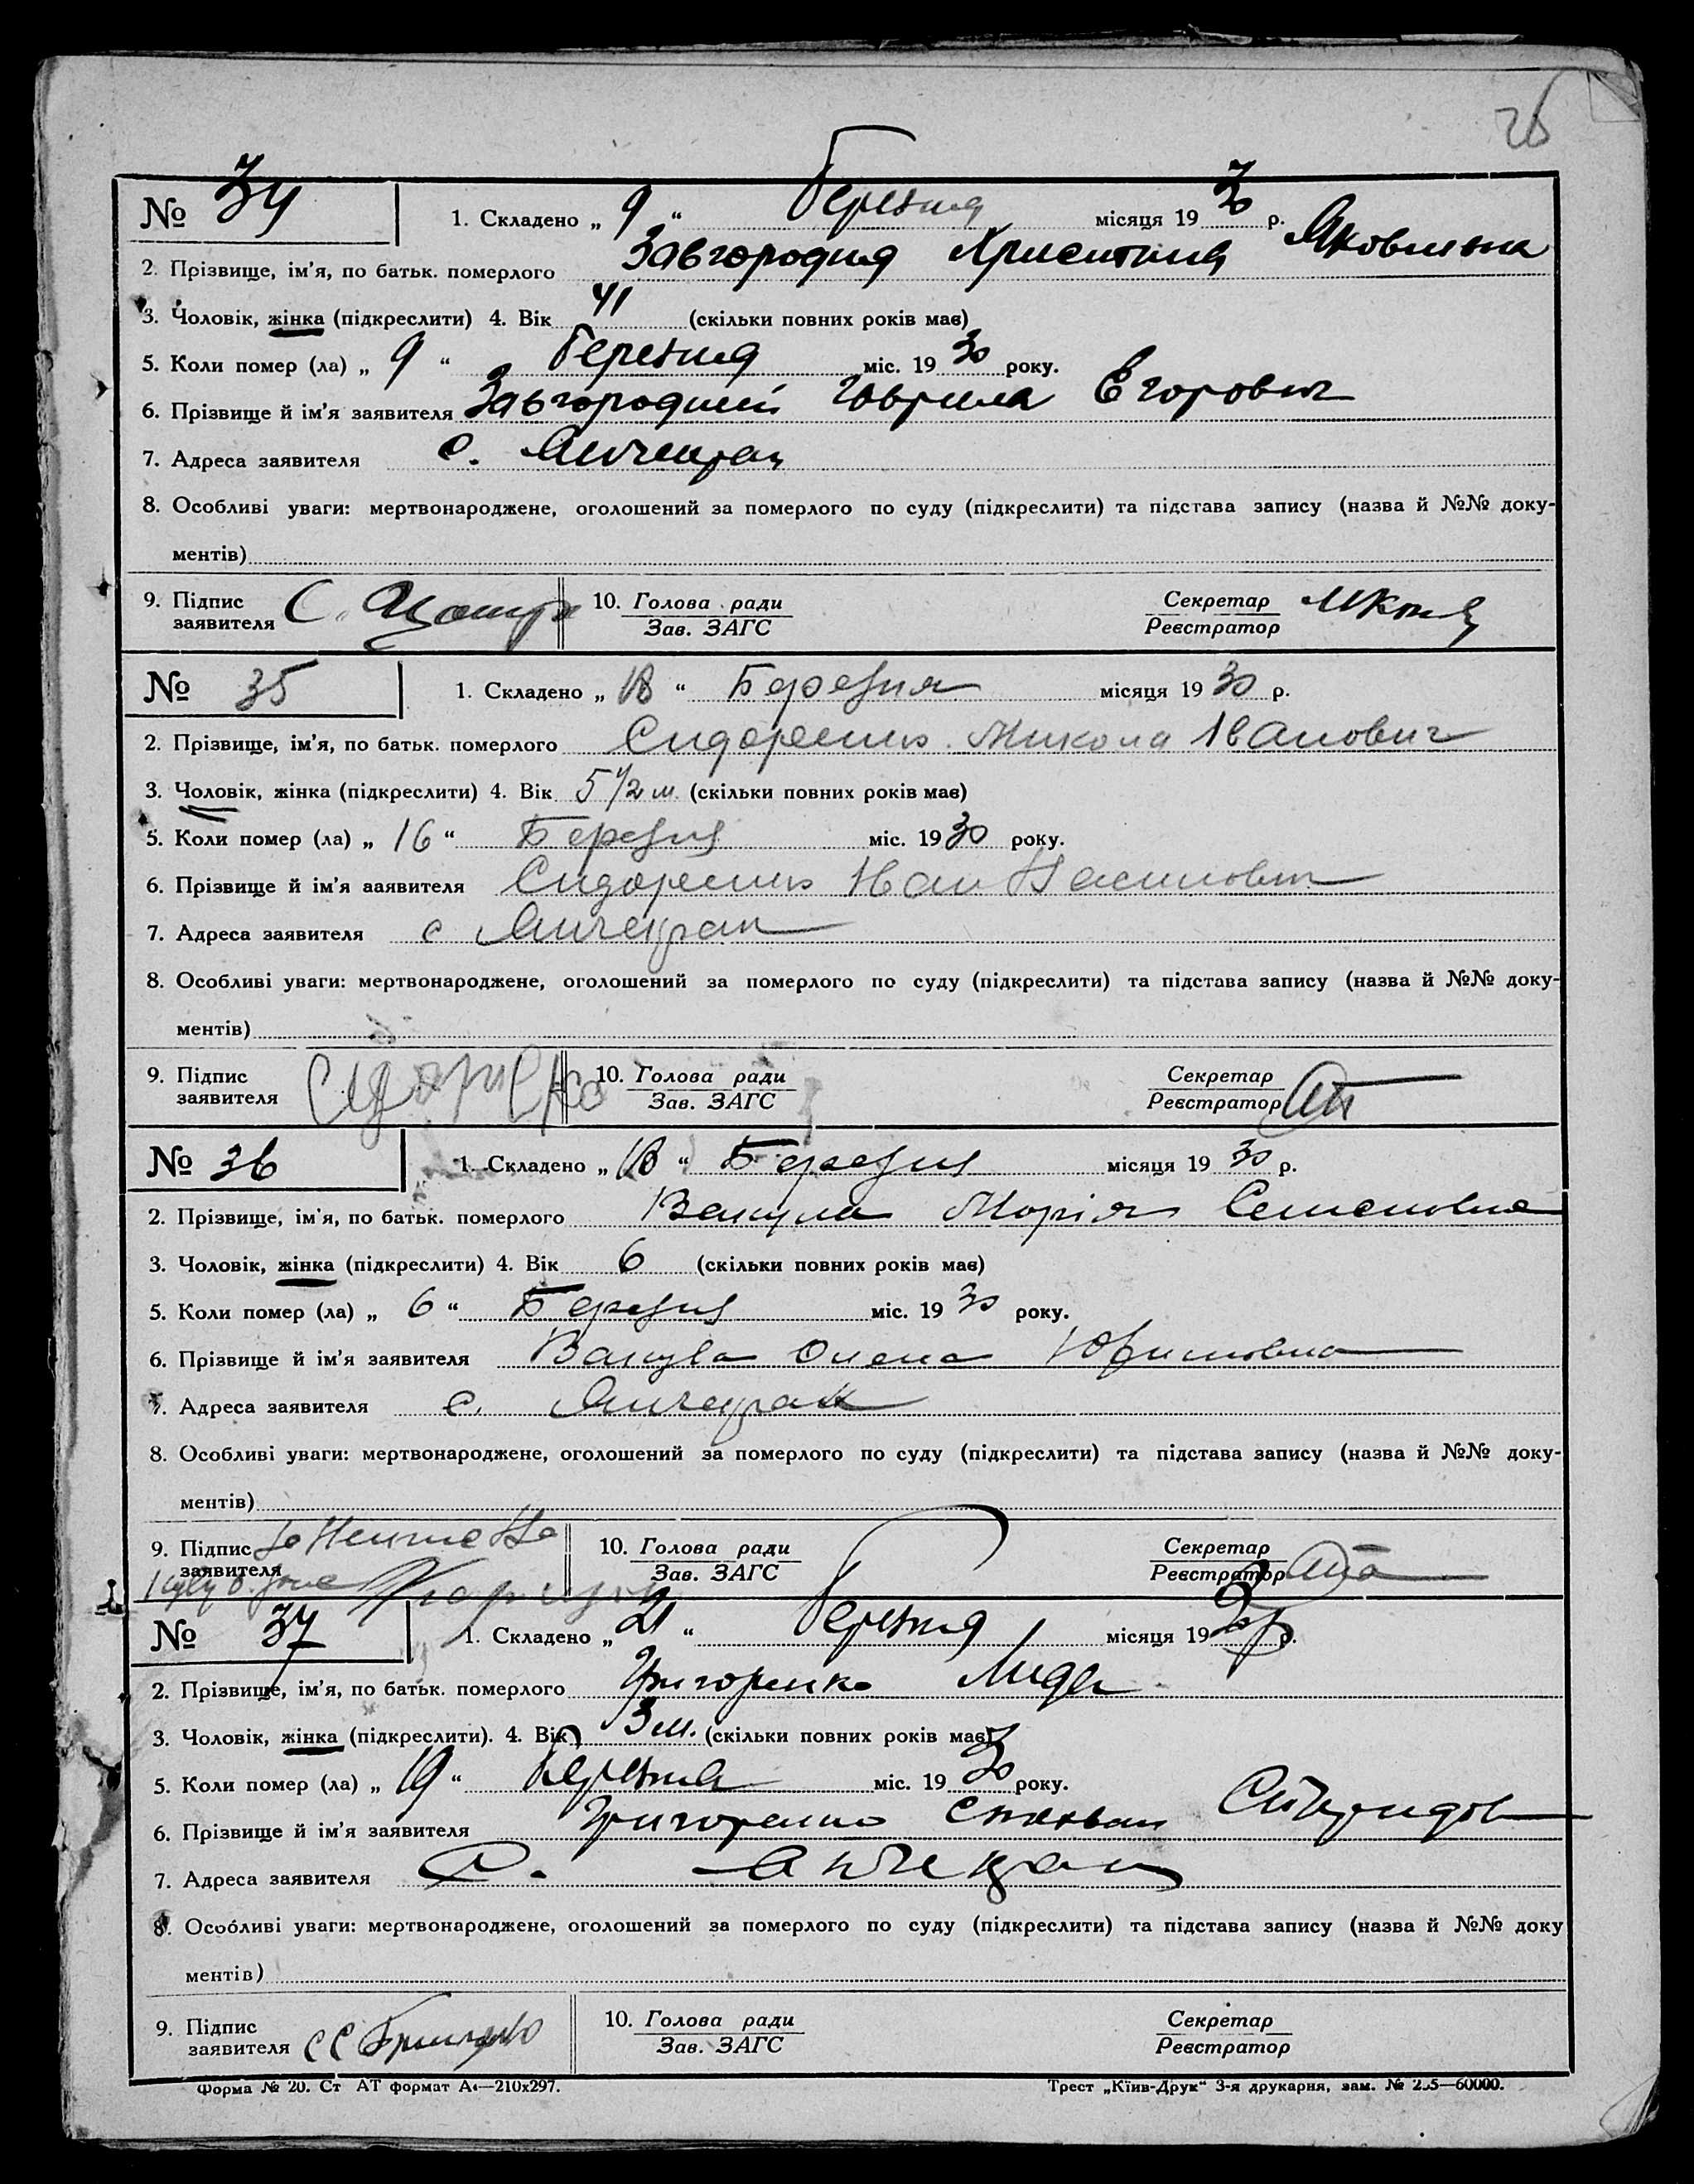 26
№ 34 1. Складено „ 9 “ березня місяця 19 30 р.
2. Прізвище, ім'я, по батьк. померлого Завгородня Христина Яковлевна
3. Чоловік, жінка (підкреслити) 4. Вік 41 (скільки повних років має)
5. Коли помер (ла) „ 9 “ березня міс. 19 30 року.
6. Прізвище й ім'я заявителя Завгородний Гаврила Егорович
7. Адреса заявителя с. Янчекрак
8. Особливі уваги: мертвонароджене, оголошений за померлого по суду (підкреслити) та підстава запису (назва й №№ доку-
ментів)
9. Підпис заявителя 10. Голова ради Зав. ЗАГС Секретар Реєстратор
№ 35 1. Складено „ 18 “ Березня місяця 19 30 р.
2. Прізвище, ім'я, по батьк. померлого Сидоренко Микола Іванович
3. Чоловік, жінка (підкреслити) 4. Вік 5 1/2 м. (скільки повних років має)
5. Коли помер (ла) „ 16 “ Березня міс. 19 30 року.
6. Прізвище й ім'я заявителя Сидоренко Іван
7. Адреса заявителя с Янчекрак
8. Особливі уваги: мертвонароджене, оголошений за померлого по суду (підкреслити) та підстава запису (назва й №№ доку-
ментів)
9. Підпис заявителя 10. Голова ради Зав. ЗАГС Секретар Реєстратор
№ 36 1. Складено „ 18 “ Березня місяця 19 30 р.
2. Прізвище, ім'я, по батьк. померлого Вакула Марія Семеновна
3. Чоловік, жінка (підкреслити) 4. Вік 6 (скільки повних років має)
5. Коли помер (ла) „ 6 “ Березня міс. 19 30 року.
6. Прізвище й ім'я заявителя Вакула Олена
7. Адреса заявителя с. Янчекрак
8. Особливі уваги: мертвонароджене, оголошений за померлого по суду (підкреслити) та підстава запису (назва й №№ доку-
ментів)
9. Підпис заявителя 10. Голова ради Зав. ЗАГС Секретар Реєстратор
№ 37 1. Складено „ 21 “ березня місяця 19 30 р.
2. Прізвище, ім'я, по батьк. померлого Григоренко Лида
3. Чоловік, жінка (підкреслити). 4. Вік 3 м. (скільки повних років має)
5. Коли помер (ла) „ 19 “ березня міс. 19 30 року.
6. Прізвище й ім'я заявителя Григоренко Степан Спиридов
7. Адреса заявителя с. Янчекрак
8. Особливі уваги: мертвонароджене, оголошений за померлого по суду (підкреслити) та підстава запису (назва й №№ доку
ментів)
9. Підпис заявителя 10. Голова ради Зав. ЗАГС Секретар Реєстратор
Форма № 20. Ст АТ формат А4—210х297. Трест „Київ-Друк“ 3-я друкарня, зам. №